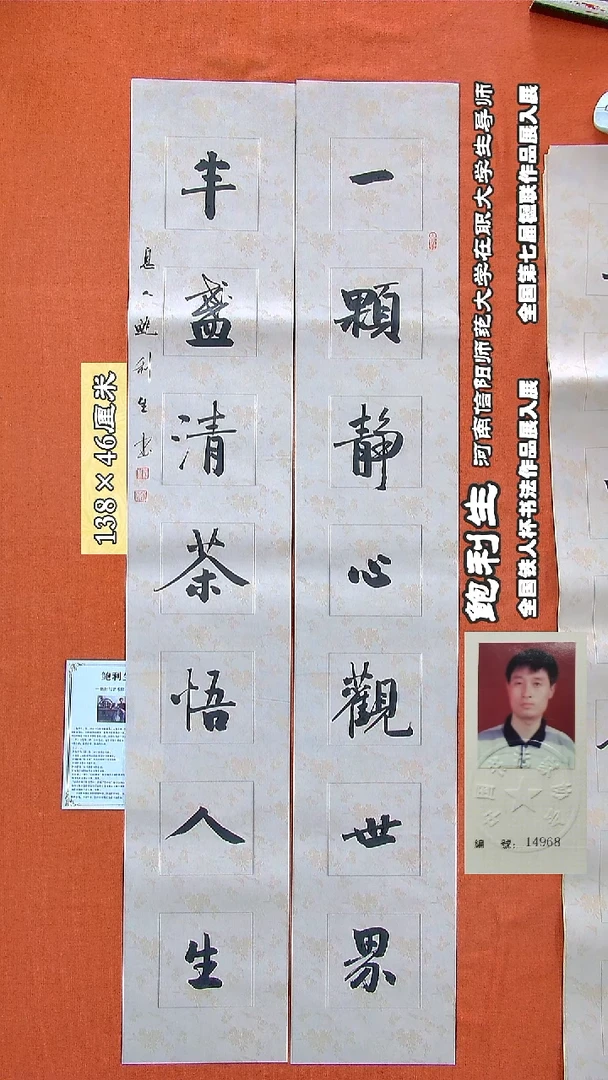 一顆靜心觀世界
半盞清茶悟人生
息人鲍利生书
138×46厘米
鲍利生 河南信阳师范大学在职大学生导师
全国铁人杯书法作品展入展 全国第七届楹联作品展入展
鲍利生
编 號：14968